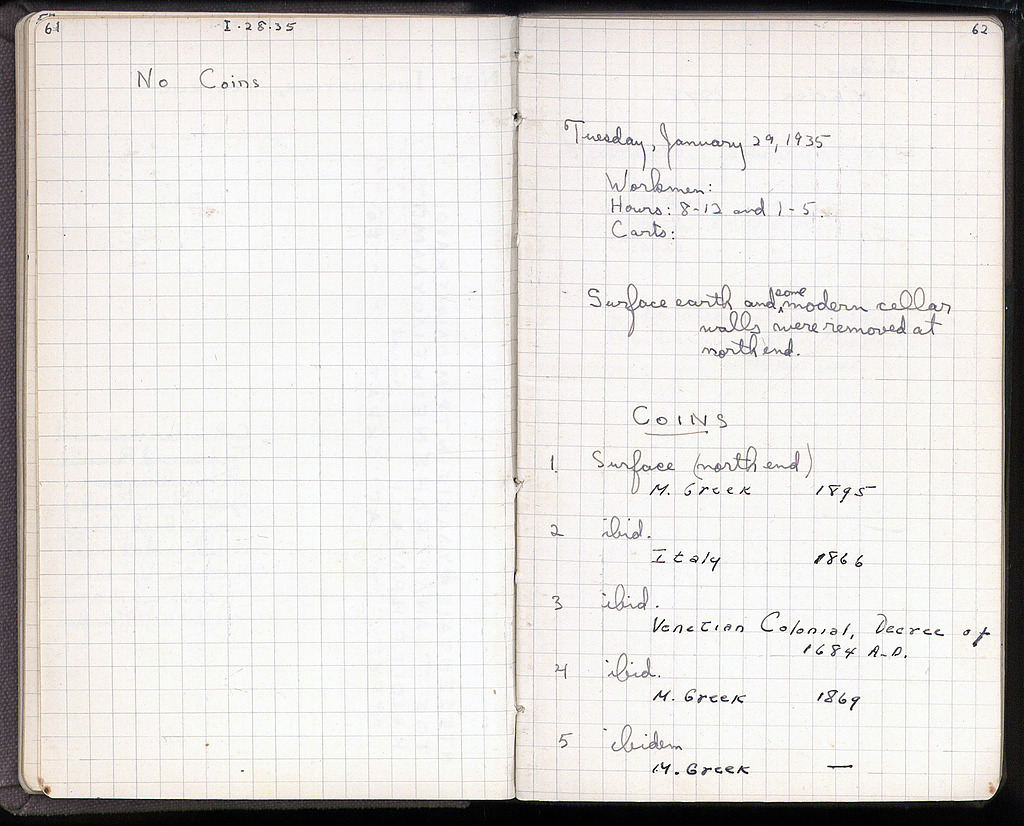 61
I·28·35
No Coins
62
Tuesday, January 29, 1935
Workmen:
Hours: 8-12 and 1-5.
Carts:
Surface earth and some modern cellar
walls were removed at
north end.
COINS
1. Surface (north end)
M. Greek 1895
2 ibid.
Italy 1866
3 ibid.
Venetian Colonial, Decree of
1684 A.D.
4 ibid.
M. Greek 1869
5 ibidem
M. Greek —